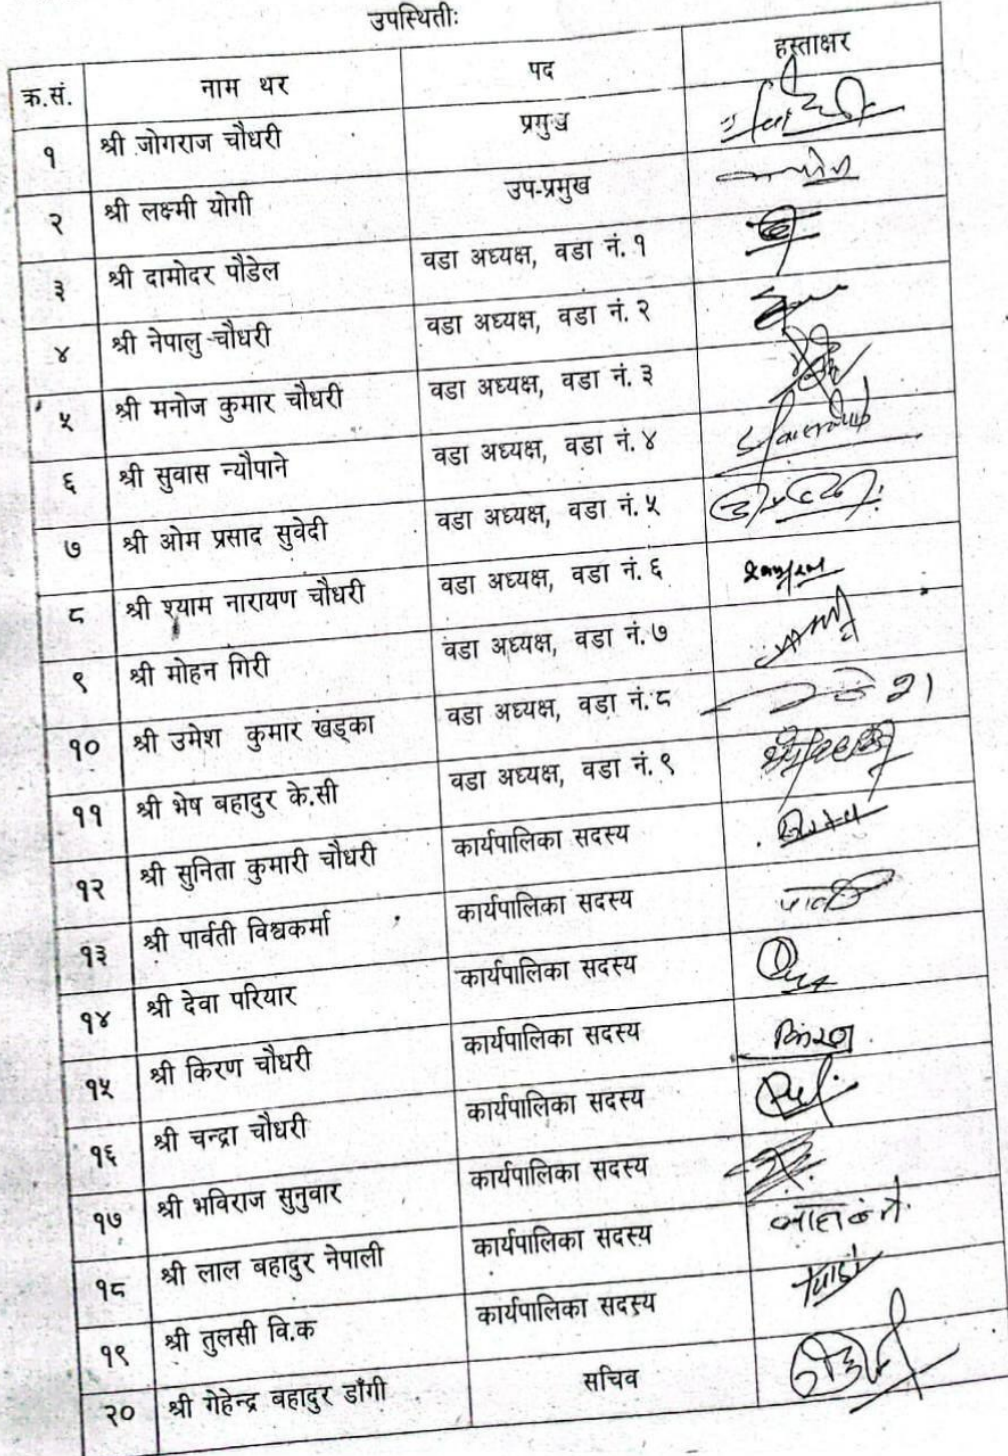 उपस्थितीः
क्र.सं. नाम थर पद हस्ताक्षर
१ श्री जोगराज चौधरी प्रमुख
२ श्री लक्ष्मी योगी उप-प्रमुख
३ श्री दामोदर पौडेल वडा अध्यक्ष, वडा नं. १
४ श्री नेपालु चौधरी वडा अध्यक्ष, वडा नं. २
५ श्री मनोज कुमार चौधरी वडा अध्यक्ष, वडा नं. ३
६ श्री सुवास न्यौपाने वडा अध्यक्ष, वडा नं. ४
७ श्री ओम प्रसाद सुवेदी वडा अध्यक्ष, वडा नं. ५
८ श्री श्याम नारायण चौधरी वडा अध्यक्ष, वडा नं. ६
९ श्री मोहन गिरी वडा अध्यक्ष, वडा नं. ७
१० श्री उमेश कुमार खड्का वडा अध्यक्ष, वडा नं. ८
११ श्री भेष बहादुर के.सी वडा अध्यक्ष, वडा नं. ९
१२ श्री सुनिता कुमारी चौधरी कार्यपालिका सदस्य
१३ श्री पार्वती विश्वकर्मा कार्यपालिका सदस्य
१४ श्री देवा परियार कार्यपालिका सदस्य
१५ श्री किरण चौधरी कार्यपालिका सदस्य किरण
१६ श्री चन्द्रा चौधरी कार्यपालिका सदस्य
१७ श्री भविराज सुनुवार कार्यपालिका सदस्य
१८ श्री लाल बहादुर नेपाली कार्यपालिका सदस्य
१९ श्री तुलसी वि.क कार्यपालिका सदस्य
२० श्री गेहेन्द्र बहादुर डाँगी सचिव